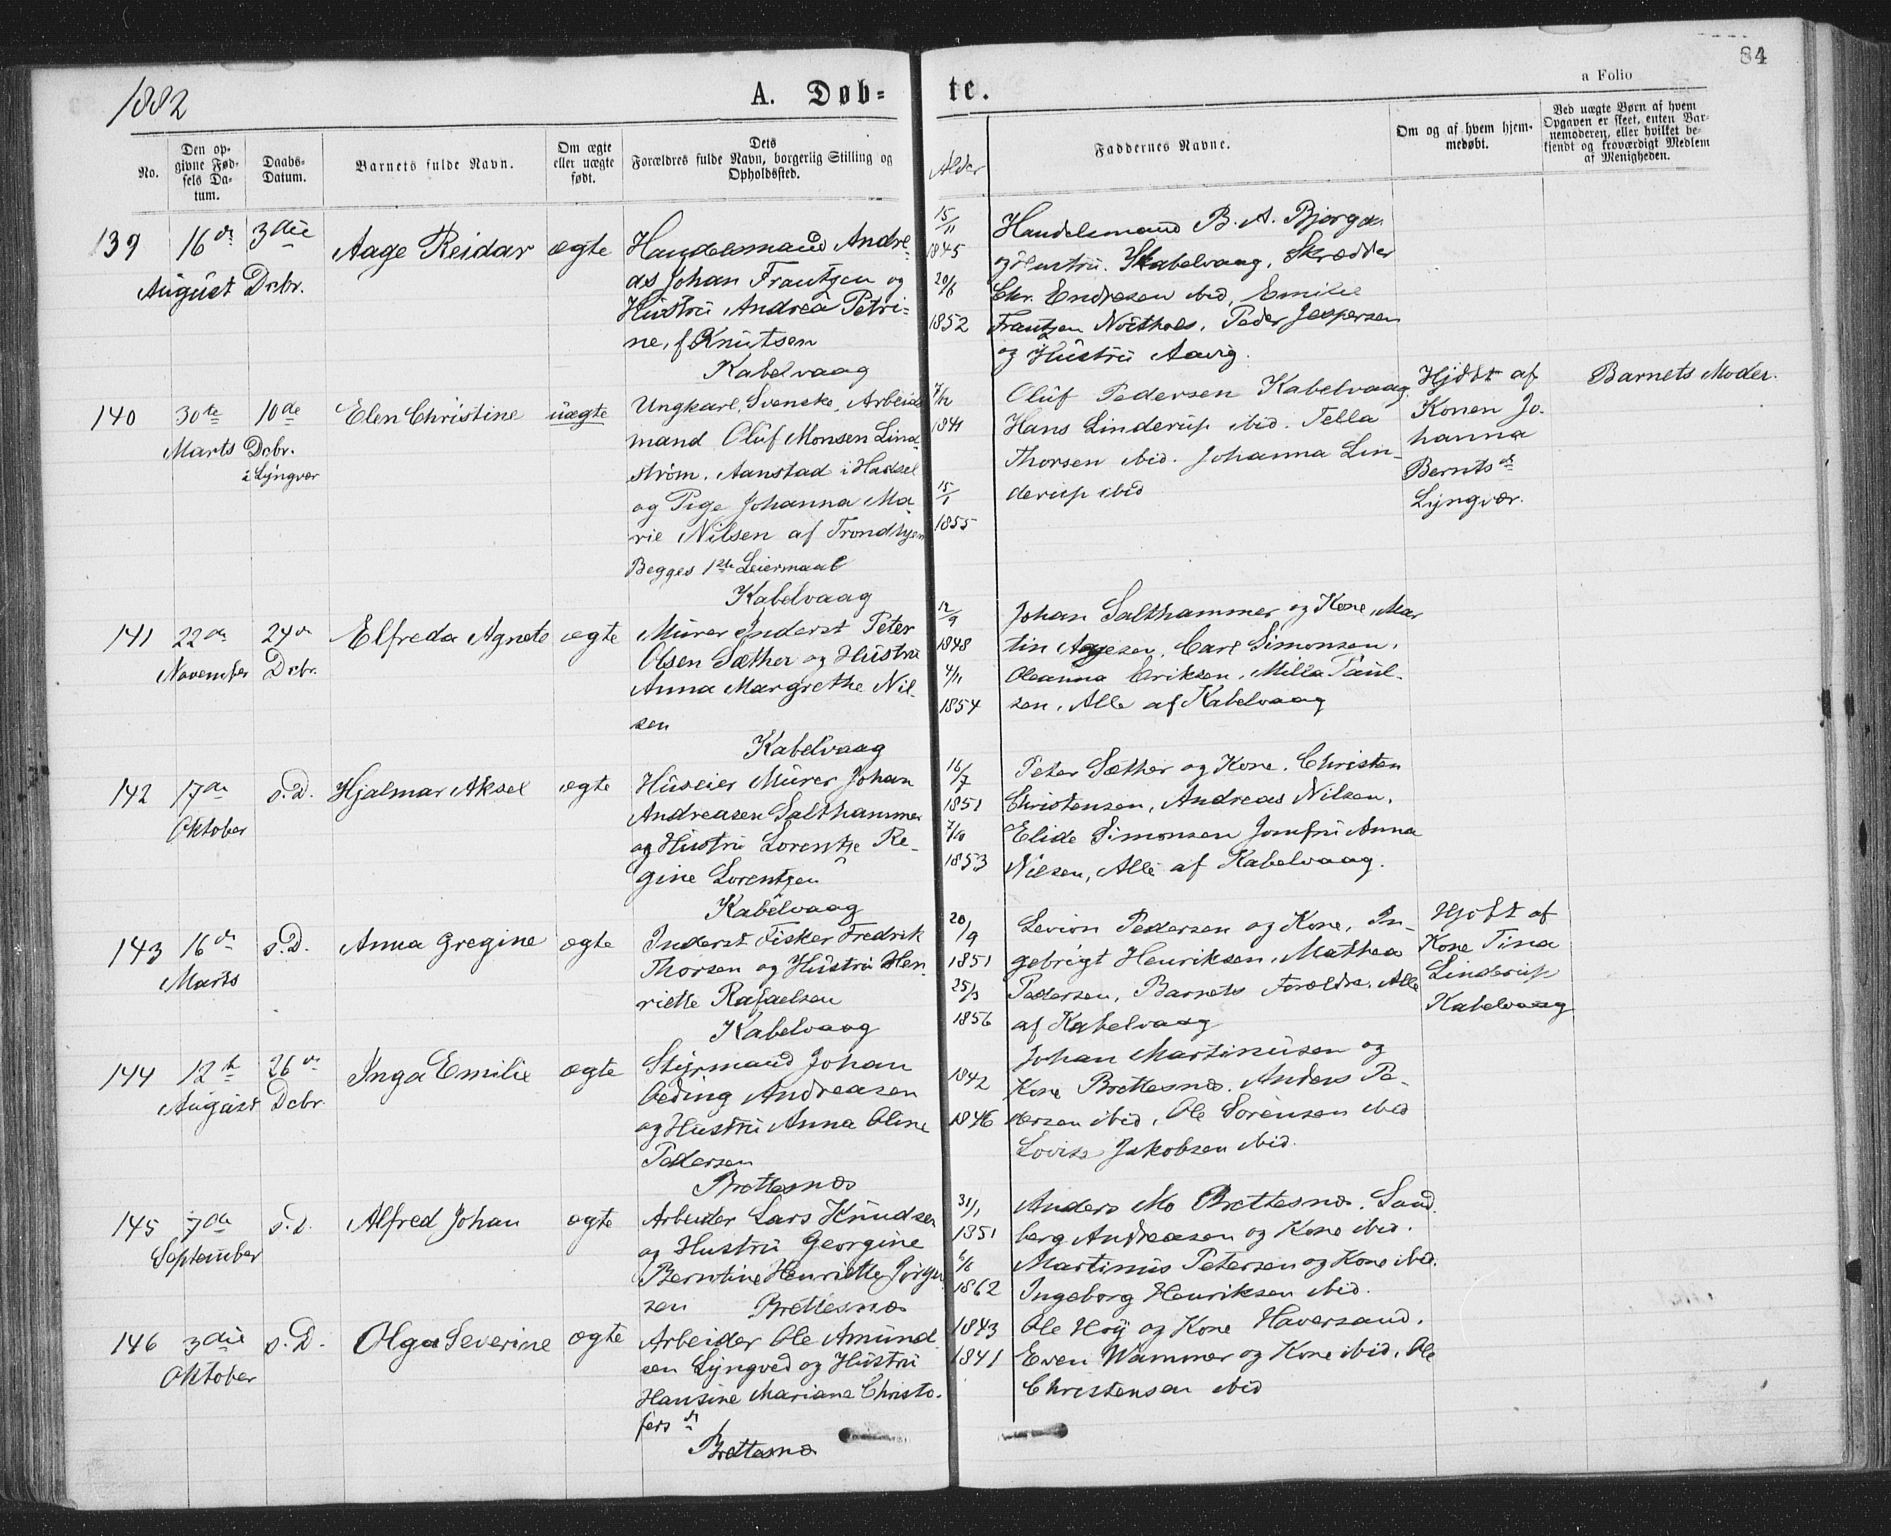 84
1882
A. Døb-
te.
a Folio
No.
Den op-
givne Fød-
sels Da-
tum.
Daabs-
Datum.
Barnets fulde Navn.
Om ægte
eller uægte
født.
Dets
Forældres fulde Navn, borgerlig Stilling og
Opholdssted.
Alder
Faddernes Navne.
Om og af hvem hjem-
medøbt.
Ved uægte Børn af hvem
Opgaven er skeet, enten Bar-
nemoderen, eller hvilket be-
kjendt og troværdigt Medlem
af Menigheden.
139
16de
August
3die
Dcbr.
Aage Reidar
ægte
Handelsmand Andre-
as Johan Frantzen og
Hustru Andrea Petri-
ne, f. Knutsen
Kabelvaag
15/11
1845
20/6
1852
Handelsmand B. A. Bjorge
og Hustru. Kabelvaag, Skrædder
Chr. Endresen ibid, Emilie
Frantzen, Peder Jespersen
og Hustru Aavig.
140
30te
Marts
10de
Dcbr.
i Lyngvær
Elen Christine
uægte
Ungkarl, Svenske, Arbeids
mand Oluf Monsen Lind-
strøm, Aanstad i Hadsel
og Pige Johanna Ma-
rie Nilsen af Trondhjem
Begges 1ste Leiermaal
Kabelvaag
7/12
1841
15/1
1855
Oluf Pedersen Kabelvaag,
Hans Linderup ibid. Tella
Thorsen ibid. Johanna Lin-
derup ibid
Hjdøbt af
Konen Jo-
hanna
Berntsdr
Lyngvær.
Barnets Moder.
141
22de
November
24de
Dcbr.
Elfreda Agnete
ægte
Murer Inderst Peter
Olsen Sæther og Hustru
Anna Margrethe Nil-
sen
Kabelvaag
12/9
1848
4/11
1854
Johan Salthammer og Kone, Mar
tin Aagesen, Carl Simonsen,
Oleanna Eriksen, Milla Paul-
sen, Alle af Kabelvaag
142
17de
Oktober
s. D.
Hjalmar Aksel
ægte
Huseier Murer Johan
Andreasen Salthammer
og Hustru Lorentze Re-
gine Lorentzen
Kabelvaag
16/7
1851
7/10
1853
Peter Sæther og Kone, Christen
Christensen, Andreas Nilsen,
Elide Simonsen Jomfru Anna
Nilsen, Alle af Kabelvaag.
143
16de
Marts
s. D.
Anna Gregine
ægte
Inderst Fisker Fredrik
Thorsen og Hustru Hen-
riette Rafaelsen
Kabelvaag
20/9
1851
25/3
1856
Levion Pedersen og Kone, In-
gebrigt Henriksen, Mathea
Pedersen, Barnets Forældre, Alle
af Kabelvaag
Hjdøbt af
Kone Tina
Linderup
Kabelvaag
144
12te
August
26de
Dcbr
Inga Emilie
ægte
Styrmand Johan
Oeding Andreasen
og Hustru Anna Oline
Pedersen
Brettesnæs
1842
1846
Johan Martinusen og
Kone Brettesnæs. Anders Pe-
dersen ibid, Ole Sørensen ibid
Lovise Jakobsen ibid.
145
7de
September
s. D.
Alfred Johan
ægte
Arbeider Lars Knudsen
og Hustru Georgine
Berntine Henriette Jørgen
sen Brettesnæs
31/1
1851
6/6
1862
Anders Mo Brettesnæs. Sand
berg Andreasen og Kone ibid.
Martinus Petersen og Kone ibid.
Ingeborg Henriksen ibid.
146
3die
Oktober
s. D.
Olga Severine
ægte
Arbeider Ole Amund
sen Lyngved og Hustru
Hansine Mariane Christo-
fersdr
Brettesnæs
1843
1841
Ole Høy og Kone Haversand,
Even Wammer og Kone ibid, Ole
Christensen ibid